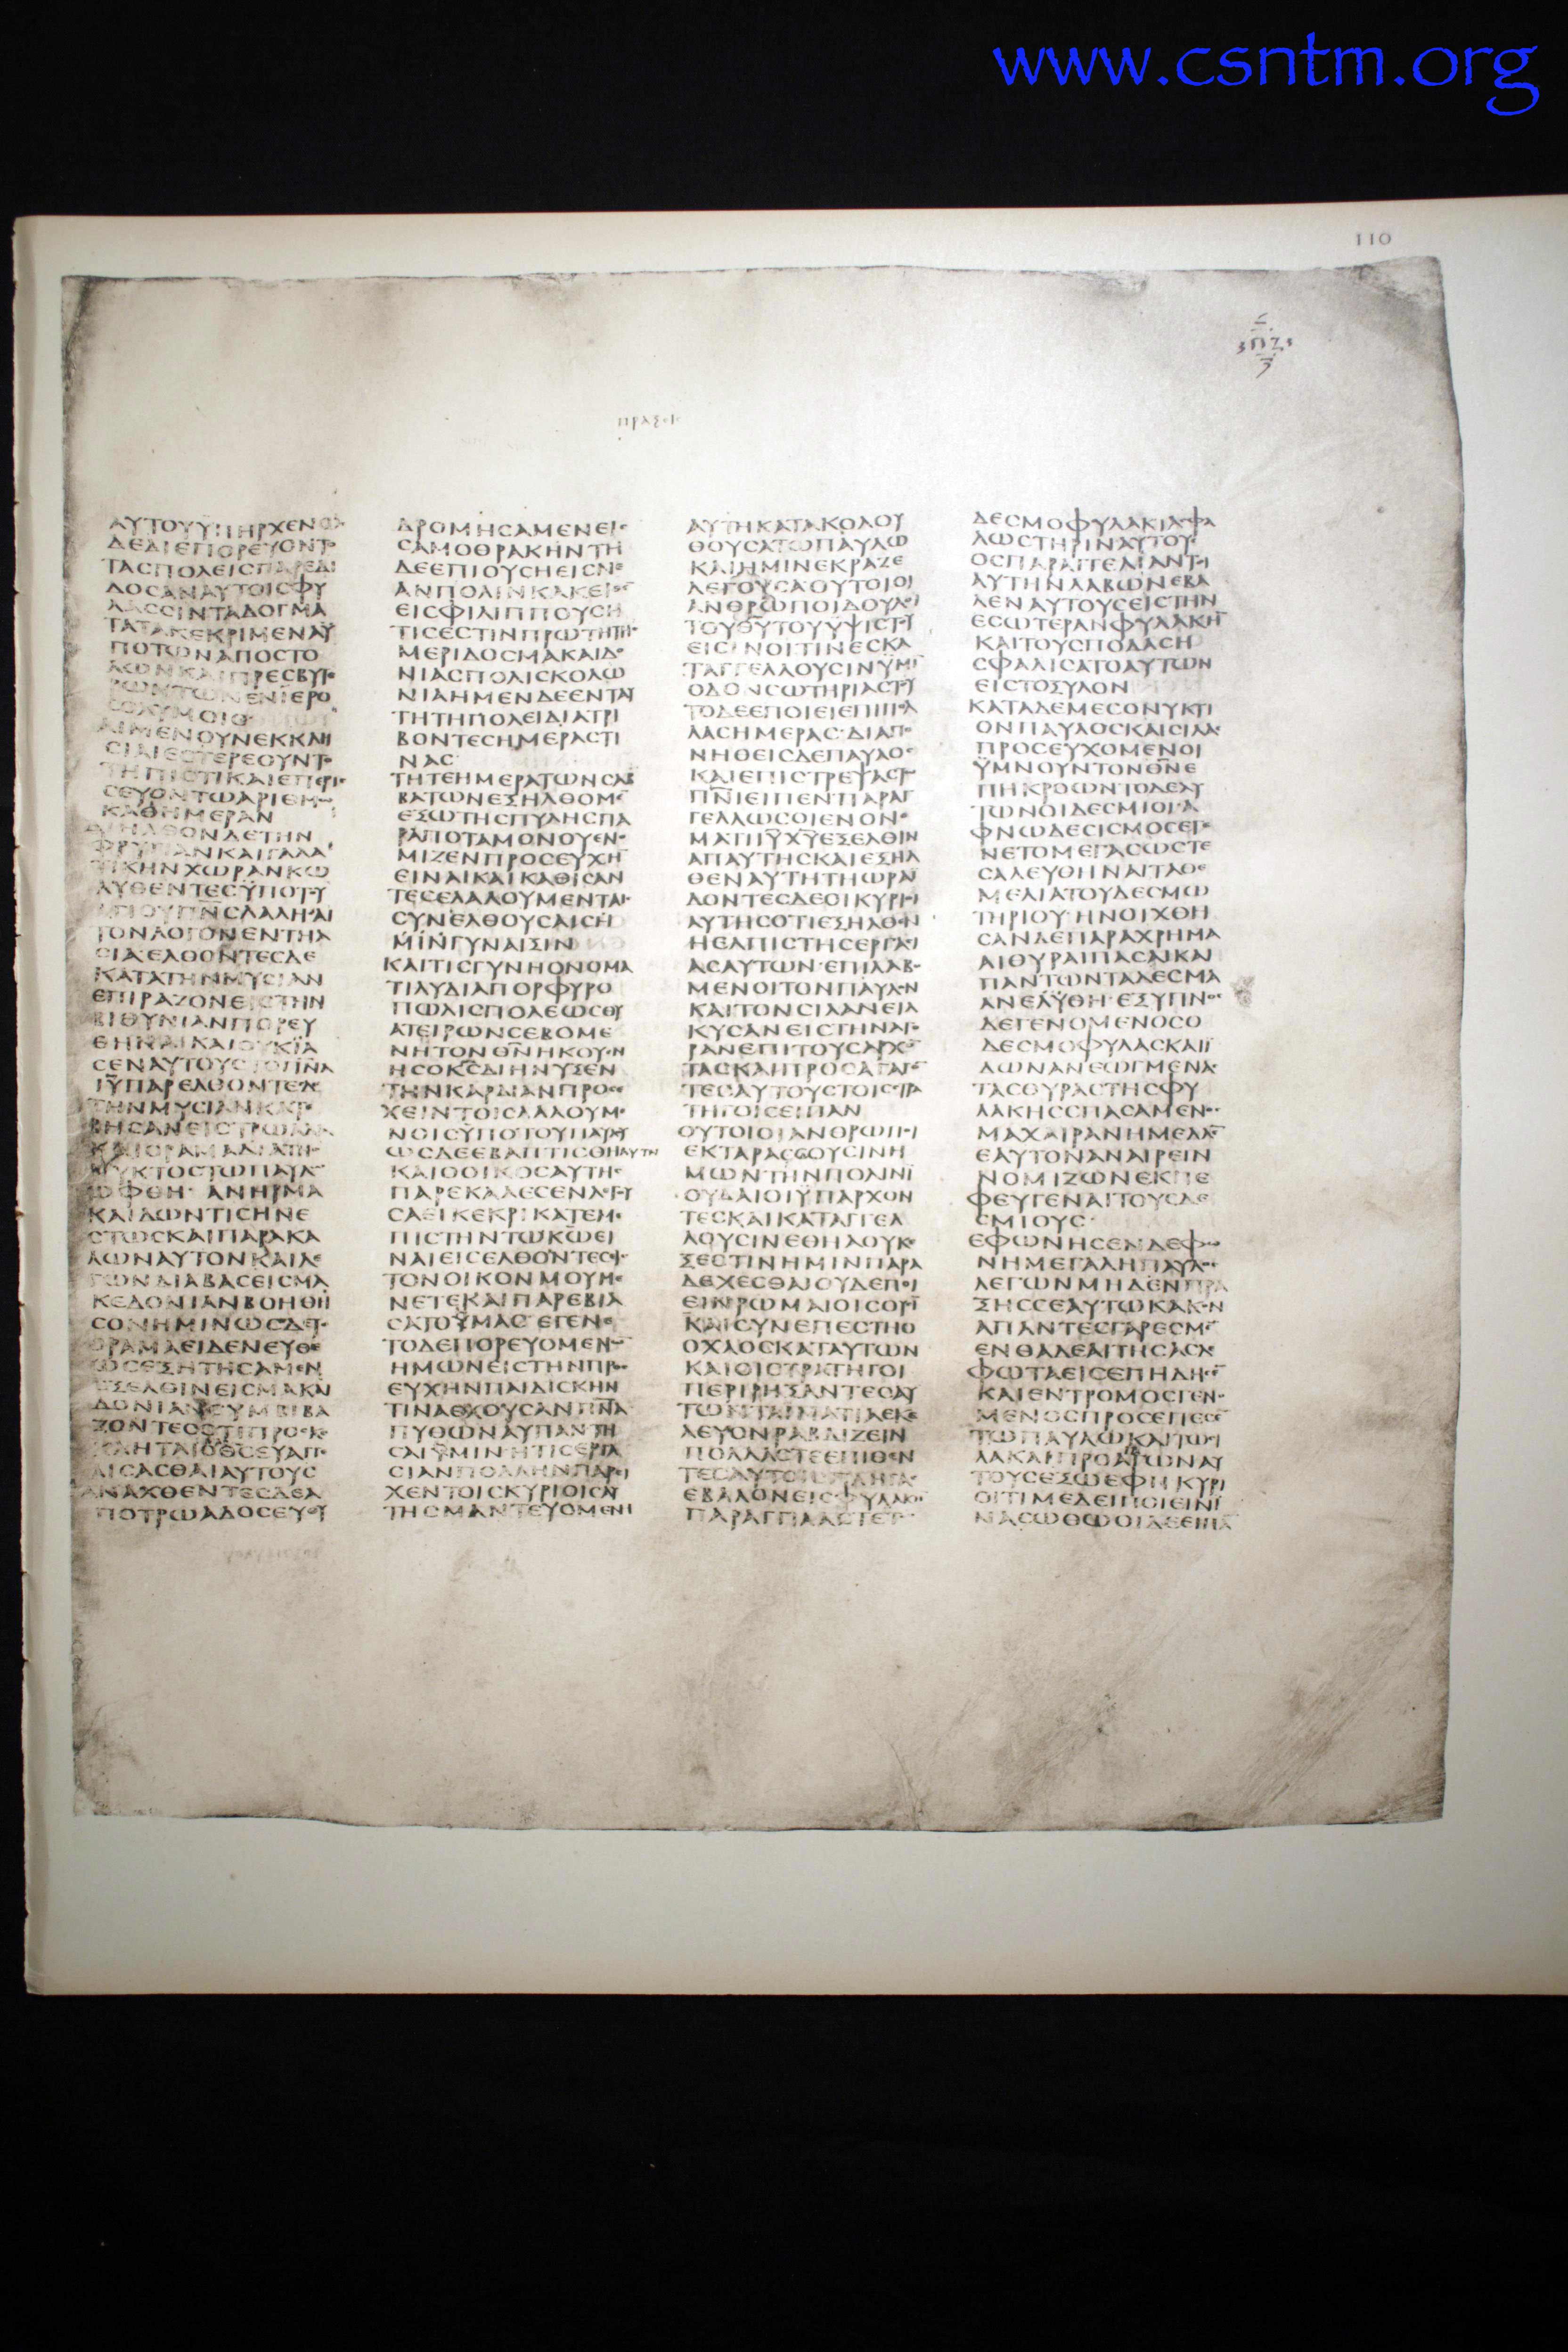 www.csntm.org
110
ΠΡΑΞΙϹ
ΑΥΤΟΥΫΠΗΡΧΕΝ
ΔΕΔΙΕΠΟΡΕΥΟΝΤ
ΤΑϹΠΟΛΕΙϹΠΑΡΕΔΙ
ΔΟϹΑΝΑΥΤΟΙϹΦΥ
ΛΑϹϹΙΝΤΑΔΟΓΜΑ
ΤΑΤΑΚΕΚΡΙΜΕΝΑΫ
ΠΟΤΩΝΑΠΟϹΤΟ
ΛΩΝΚΑΙΠΡΕϹΒΥΤΕ
ΡΩΝΤΩΝΕΝΙΕΡΟ
ϹΟΛΥΜΟΙϹ
ΑΙΜΕΝΟΥΝΕΚΚΛΗ
ϹΙΑΙΕϹΤΕΡΕΟΥΝΤ
ΤΗΠΙϹΤΙΚΑΙΕΠΕΡΙϹ
ϹΕΥΟΝΤΩΑΡΙΘΜΩ
ΚΑΘΗΜΕΡΑΝ
ΔΙΗΛΘΟΝΔΕΤΗΝ
ΦΡΥΓΙΑΝΚΑΙΓΑΛΑ
ΤΙΚΗΝΧΩΡΑΝΚΩ
ΛΥΘΕΝΤΕϹΫΠΟΤΟΥ
ΑΓΙΟΥΠΝϹΛΑΛΗϹΑΙ
ΤΟΝΛΟΓΟΝΕΝΤΗΑ
ϹΙΑΕΛΘΟΝΤΕϹΔΕ
ΚΑΤΑΤΗΝΜΥϹΙΑΝ
ΕΠΙΡΑΖΟΝΕΙϹΤΗΝ
ΒΙΘΥΝΙΑΝΠΟΡΕΥ
ΘΗΝΑΙΚΑΙΟΥΚΪΑ
ϹΕΝΑΥΤΟΥϹΤΟΠΝΑ
ΙΥΠΑΡΕΛΘΟΝΤΕϹΔΕ
ΤΗΝΜΥϹΙΑΝΚΑΤΕ
ΒΗϹΑΝΕΙϹΤΡΩΑΔΑ
ΚΑΙΟΡΑΜΑΔΙΑΤΗϹ
ΝΥΚΤΟϹΤΩΠΑΥΛΩ
ΩΦΘΗ ΑΝΗΡΜΑ
ΚΑΙΔΩΝΤΙϹΗΝΕ
ϹΤΩϹΚΑΙΠΑΡΑΚΑ
ΛΩΝΑΥΤΟΝΚΑΙΛΕ
ΓΩΝΔΙΑΒΑϹΕΙϹΜΑ
ΚΕΔΟΝΙΑΝΒΟΗΘΗ
ϹΟΝΗΜΙΝΩϹΔΕΤΟ
ΟΡΑΜΑΕΙΔΕΝΕΥΘΕ
ΩϹΕΖΗΤΗϹΑΜΕΝ
ΕΞΕΛΘΙΝΕΙϹΜΑΚΑΙ
ΔΟΝΙΑΝϹΥΜΒΙΒΑ
ΖΟΝΤΕϹΟΤΙΠΡΟϹΚΕ
ΚΛΗΤΑΙΟΘϹΕΥΑΓΓΕ
ΛΙϹΑϹΘΑΙΑΥΤΟΥϹ
ΑΝΑΧΘΕΝΤΕϹΔΕΑ
ΠΟΤΡΩΑΔΟϹΕΥΘΥ
ΔΡΟΜΗϹΑΜΕΝΕΙϹ
ϹΑΜΟΘΡΑΚΗΝΤΗ
ΔΕΕΠΙΟΥϹΗΕΙϹΝΕ
ΑΝΠΟΛΙΝΚΑΚΕΙΘΕ
ΕΙϹΦΙΛΙΠΠΟΥϹΗ
ΤΙϹΕϹΤΙΝΠΡΩΤΗΤΗϹ
ΜΕΡΙΔΟϹΜΑΚΑΙΔΟ
ΝΙΑϹΠΟΛΙϹΚΟΛΩ
ΝΙΑΗΜΕΝΔΕΕΝΤΑΥ
ΤΗΤΗΠΟΛΕΙΔΙΑΤΡΙ
ΒΟΝΤΕϹΗΜΕΡΑϹΤΙ
ΝΑϹ
ΤΗΤΕΗΜΕΡΑΤΩΝϹΑΒ
ΒΑΤΩΝΕΞΗΛΘΟΜΕ
ΕΞΩΤΗϹΠΥΛΗϹΠΑ
ΡΑΠΟΤΑΜΟΝΟΥΕΝΟ
ΜΙΖΕΝΠΡΟϹΕΥΧΗ
ΕΙΝΑΙΚΑΙΚΑΘΙϹΑΝ
ΤΕϹΕΛΑΛΟΥΜΕΝΤΑΙϹ
ϹΥΝΕΛΘΟΥϹΑΙϹΗ
ΜΙΝΓΥΝΑΙΞΙΝ
ΚΑΙΤΙϹΓΥΝΗΟΝΟΜΑ
ΤΙΛΥΔΙΑΠΟΡΦΥΡΟ
ΠΩΛΙϹΠΟΛΕΩϹΘΥ
ΑΤΕΙΡΩΝϹΕΒΟΜΕ
ΝΗΤΟΝΘΝΗΚΟΥΕΝ
ΗϹΟΚϹΔΙΗΝΥΞΕΝ
ΤΗΝΚΑΡΔΙΑΝΠΡΟϹΕ
ΧΕΙΝΤΟΙϹΛΑΛΟΥΜΕ
ΝΟΙϹΫΠΟΤΟΥΠΑΥΛΟΥ
ΩϹΔΕΕΒΑΠΤΙϹΘΗΑΥΤΗ
ΚΑΙΟΟΙΚΟϹΑΥΤΗϹ
ΠΑΡΕΚΑΛΕϹΕΝΛΕΓΟΥ
ϹΑΕΙΚΕΚΡΙΚΑΤΕΜΕ
ΠΙϹΤΗΝΤΩΚΩΕΙ
ΝΑΙΕΙϹΕΛΘΟΝΤΕϹΕΙϹ
ΤΟΝΟΙΚΟΝΜΟΥΜΕ
ΝΕΤΕΚΑΙΠΑΡΕΒΙΑ
ϹΑΤΟΥΜΑϹ ΕΓΕΝΕ
ΤΟΔΕΠΟΡΕΥΟΜΕΝΩ
ΗΜΩΝΕΙϹΤΗΝΠΡΟϹ
ΕΥΧΗΝΠΑΙΔΙϹΚΗΝ
ΤΙΝΑΕΧΟΥϹΑΝΠΝΑ
ΠΥΘΩΝΑΥΠΑΝΤΗ
ϹΑΙΫΜΙΝΗΤΙϹΕΡΓΑ
ϹΙΑΝΠΟΛΛΗΝΠΑΡΕΙ
ΧΕΝΤΟΙϹΚΥΡΙΟΙϹΑΥ
ΤΗϹΜΑΝΤΕΥΟΜΕΝΗ
ΑΥΤΗΚΑΤΑΚΟΛΟΥ
ΘΟΥϹΑΤΩΠΑΥΛΩ
ΚΑΙΗΜΙΝΕΚΡΑΖΕ
ΛΕΓΟΥϹΑΟΥΤΟΙΟΙ
ΑΝΘΡΩΠΟΙΔΟΥΛΟΙ
ΤΟΥΘΥΤΟΥΫΨΙϹΤΟΥ
ΕΙϹΙΝΟΙΤΙΝΕϹΚΑ
ΤΑΓΓΕΛΛΟΥϹΙΝΫΜΙ
ΟΔΟΝϹΩΤΗΡΙΑϹΤΟΥ
ΤΟΔΕΕΠΟΙΕΙΕΠΙΠΟΛ
ΛΑϹΗΜΕΡΑϹ ΔΙΑΠΟ
ΝΗΘΕΙϹΔΕΠΑΥΛΟϹ
ΚΑΙΕΠΙϹΤΡΕΨΑϹΤΩ
ΠΝΙΕΙΠΕΝΠΑΡΑΓ
ΓΕΛΛΩϹΟΙΕΝΟΝΟ
ΜΑΤΙΙΥΧΥΕΞΕΛΘΙΝ
ΑΠΑΥΤΗϹΚΑΙΕΞΗΛ
ΘΕΝΑΥΤΗΤΗΩΡΑ
ΙΔΟΝΤΕϹΔΕΟΙΚΥΡΙΟΙ
ΑΥΤΗϹΟΤΙΕΞΗΛΘΕΝ
ΗΕΛΠΙϹΤΗϹΕΡΓΑϹΙ
ΑϹΑΥΤΩΝ ΕΠΙΛΑΒΟ
ΜΕΝΟΙΤΟΝΠΑΥΛΟΝ
ΚΑΙΤΟΝϹΙΛΑΝΕΙΛ
ΚΥϹΑΝΕΙϹΤΗΝΑΓΟ
ΡΑΝΕΠΙΤΟΥϹΑΡΧΟ
ΤΑϹΚΑΙΠΡΟϹΑΓΑΓΟ
ΤΕϹΑΥΤΟΥϹΤΟΙϹϹΤΡΑ
ΤΗΓΟΙϹΕΙΠΑΝ
ΟΥΤΟΙΟΙΑΝΘΡΩΠΟΙ
ΕΚΤΑΡΑϹϹΟΥϹΙΝΗ
ΜΩΝΤΗΝΠΟΛΙΝΪ
ΟΥΔΑΙΟΙΫΠΑΡΧΟΝ
ΤΕϹΚΑΙΚΑΤΑΓΓΕΛ
ΛΟΥϹΙΝΕΘΗΑΟΥΚΕ
ΞΕϹΤΙΝΗΜΙΝΠΑΡΑ
ΔΕΧΕϹΘΑΙΟΥΔΕΠΟΙ
ΕΙΝΡΩΜΑΙΟΙϹΟΥϹΙ
ΚΑΙϹΥΝΕΠΕϹΤΗΟ
ΟΧΛΟϹΚΑΤΑΥΤΩΝ
ΚΑΙΟΙϹΤΡΑΤΗΓΟΙ
ΠΕΡΙΡΗΞΑΝΤΕϹΑΥ
ΤΩΝΤΑΙΜΑΤΙΑΕΚΕ
ΛΕΥΟΝΡΑΒΔΙΖΕΙΝ
ΠΟΛΛΑϹΤΕΕΠΙΘΕΝ
ΤΕϹΑΥΤΟΙϹΠΛΗΓΑϹ
ΕΒΑΛΟΝΕΙϹΦΥΛΑΚΗ
ΠΑΡΑΓΓΙΛΑΝΤΕϹ
ΔΕϹΜΟΦΥΛΑΚΙΑϹΦΑ
ΛΩϹΤΗΡΙΝΑΥΤΟΥϹ
ΟϹΠΑΡΑΓΓΕΛΙΑΝΤΟΙ
ΑΥΤΗΝΛΑΒΩΝΕΒΑ
ΛΕΝΑΥΤΟΥϹΕΙϹΤΗΝ
ΕϹΩΤΕΡΑΝΦΥΛΑΚΗ
ΚΑΙΤΟΥϹΠΟΔΑϹΗ
ϹΦΑΛΙϹΑΤΟΑΥΤΩΝ
ΕΙϹΤΟΞΥΛΟΝ
ΚΑΤΑΔΕΜΕϹΟΝΥΚΤΙ
ΟΝΠΑΥΛΟϹΚΑΙϹΙΛΑϹ
ΠΡΟϹΕΥΧΟΜΕΝΟΙ
ΫΜΝΟΥΝΤΟΝΘΝΕ
ΠΗΚΡΟΩΝΤΟΔΕΑΥ
ΤΩΝΟΙΔΕϹΜΙΟΙ Α
ΦΝΩΔΕϹΙϹΜΟϹΕΓΕ
ΝΕΤΟΜΕΓΑϹΩϹΤΕ
ϹΑΛΕΥΘΗΝΑΙΤΑΘΕ
ΜΕΛΙΑΤΟΥΔΕϹΜΩ
ΤΗΡΙΟΥ ΗΝΟΙΧΘΗ
ϹΑΝΔΕΠΑΡΑΧΡΗΜΑ
ΑΙΘΥΡΑΙΠΑϹΑΙΚΑΙ
ΠΑΝΤΩΝΤΑΔΕϹΜΑ
ΑΝΕΛΥΘΗ ΕΞΥΠΝΟϹ
ΔΕΓΕΝΟΜΕΝΟϹΟ
ΔΕϹΜΟΦΥΛΑΞΚΑΙΪ
ΔΩΝΑΝΕΩΓΜΕΝΑϹ
ΤΑϹΘΥΡΑϹΤΗϹΦΥ
ΛΑΚΗϹϹΠΑϹΑΜΕΝΟϹ
ΜΑΧΑΙΡΑΝΗΜΕΛΛΕ
ΕΑΥΤΟΝΑΝΑΙΡΕΙΝ
ΝΟΜΙΖΩΝΕΚΠΕ
ΦΕΥΓΕΝΑΙΤΟΥϹΔΕ
ϹΜΙΟΥϹ
ΕΦΩΝΗϹΕΝΔΕΦΩ
ΝΗΜΕΓΑΛΗΠΑΥΛΟϹ
ΛΕΓΩΝΜΗΔΕΝΠΡΑ
ΞΗϹϹΕΑΥΤΩΚΑΚΟΝ
ΑΠΑΝΤΕϹΓΑΡΕϹΜΕ
ΕΝΘΑΔΕΑΙΤΗϹΑϹΔΕ
ΦΩΤΑΕΙϹΕΠΗΔΗϹΕ
ΚΑΙΕΝΤΡΟΜΟϹΓΕΝΟ
ΜΕΝΟϹΠΡΟϹΕΠΕϹΕ
ΤΩΠΑΥΛΩΚΑΙΤΩϹΙ
ΛΑΚΑΙΠΡΟΑΓΩΝΑΥ
ΤΟΥϹΕΞΩΕΦΗ ΚΥΡΙ
ΟΙΤΙΜΕΔΕΙΠΟΙΕΙΝΙ
ΝΑϹΩΘΩΟΙΔΕΕΙΠΑ